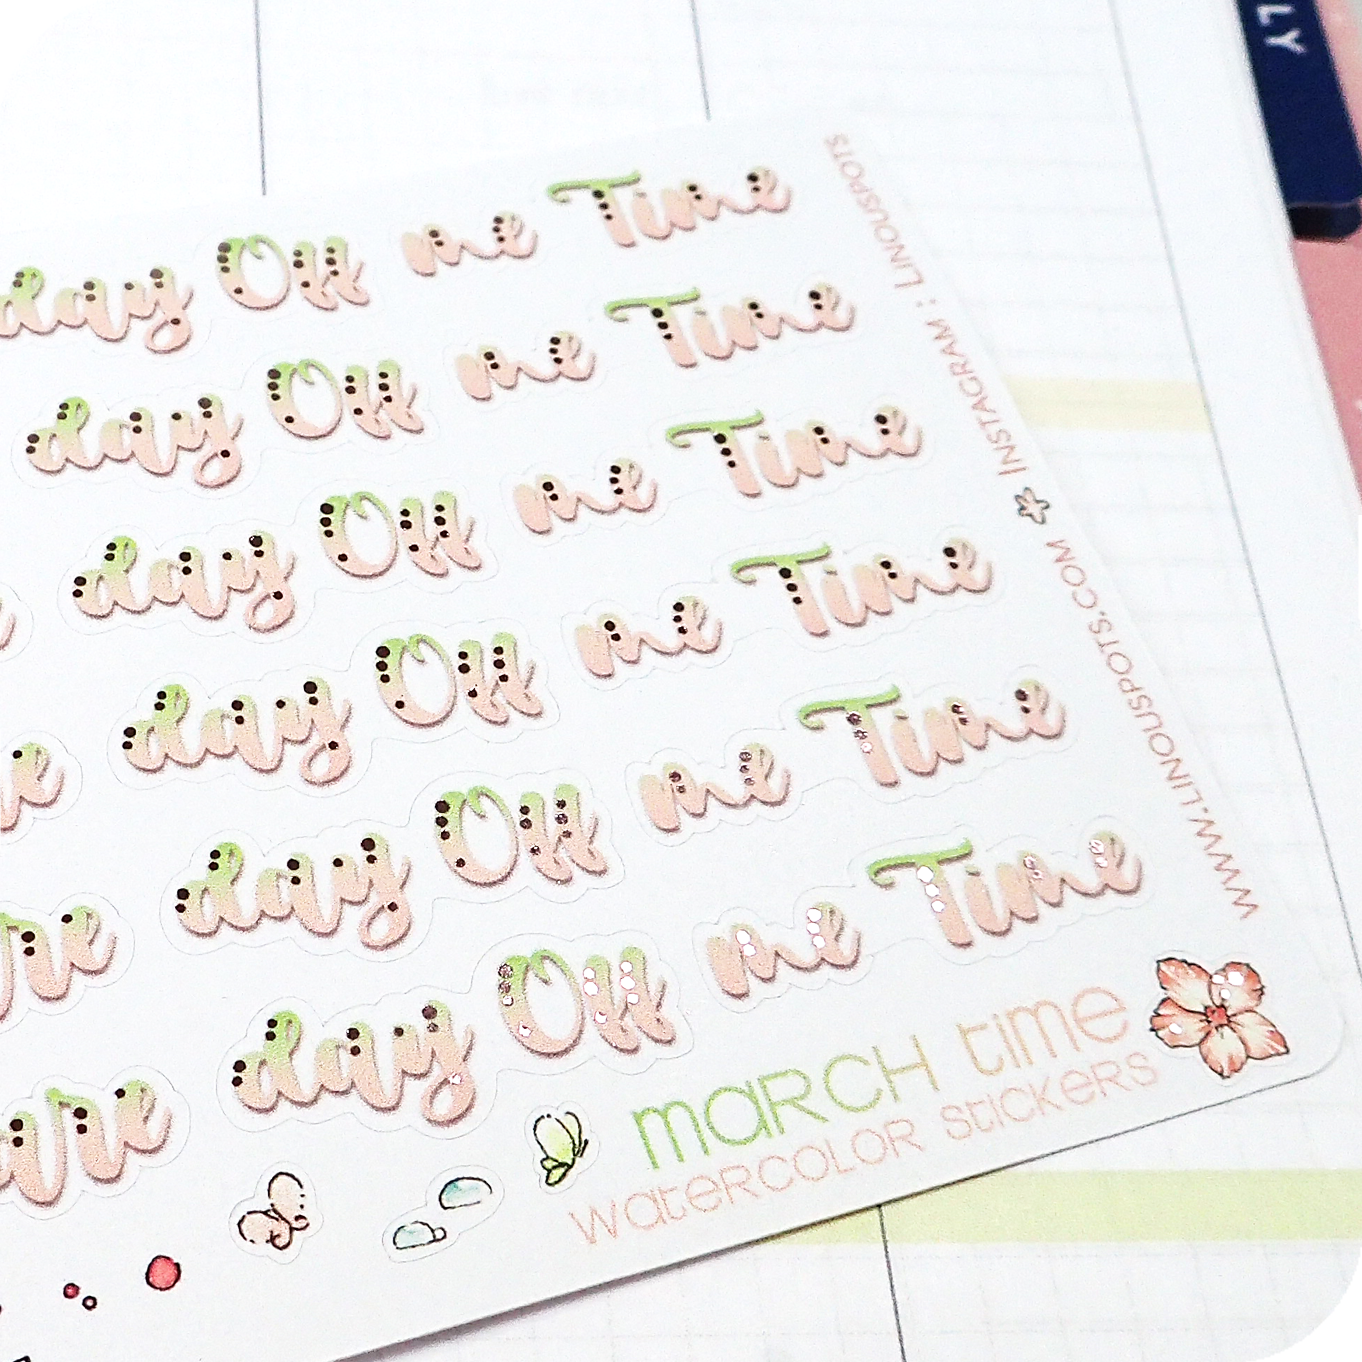 LY
day Off me Time
day Off me Time
day Off me Time
day Off me Time
day Off me Time
day Off me Time
march time
watercolor stickers
www.linouspots.com * Instagram : Linouspots